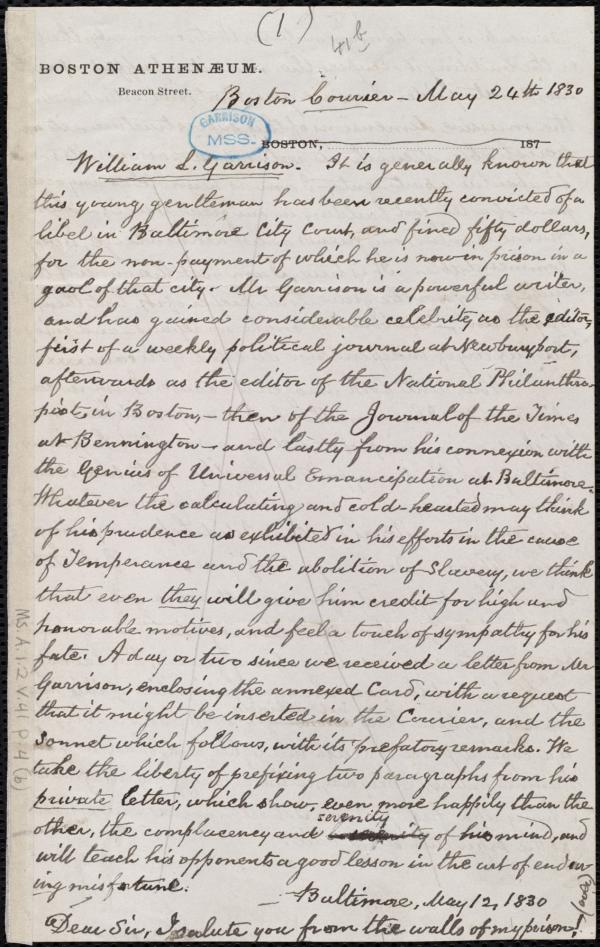 (1)
41b
BOSTON ATHENÆUM.
Beacon Street.
Boston Courier - May 24th 1830
GARRISON
MSS.
BOSTON, 187
William L. Garrison. It is generally known that
this young gentleman has been recently convicted of a
libel in Baltimore City Court, and fined fifty dollars,
for the non-payment of which he is now in prison in a
gaol of that city. Mr Garrison is a powerful writer,
and has gained considerable celebrity as the editor,
first of a weekly political journal at Newburyport,
afterwards as the editor of the National Philanthro-
pist, in Boston, - then of the Journal of the Times
at Bennington - and lastly from his connexion with
the Genius of Universal Emancipation at Baltimore.
Whatever the calculating and cold-hearted may think
of his prudence as exhibited in his efforts in the cause
of Temperance and the abolition of Slavery, we think
that even they will give him credit for high and
honorable motives, and feel a touch of sympathy for his
fate. A day or two since we received a letter from Mr
Garrison, enclosing the annexed Card, with a request
that it might be inserted in the Courier, and the
Sonnet which follows, with its prefatory remarks. We
take the liberty of prefixing two paragraphs from his
private letter, which show, even more happily than the
serenity
other, the complacency and of his mind, and
will teach his opponents a good lesson in the art of endur-
ing misfortune.
Baltimore, May 12, 1830
Dear Sir, I salute you from the walls of my prison!
(over)
MS.A.1.2 V.41 P.4 (b)